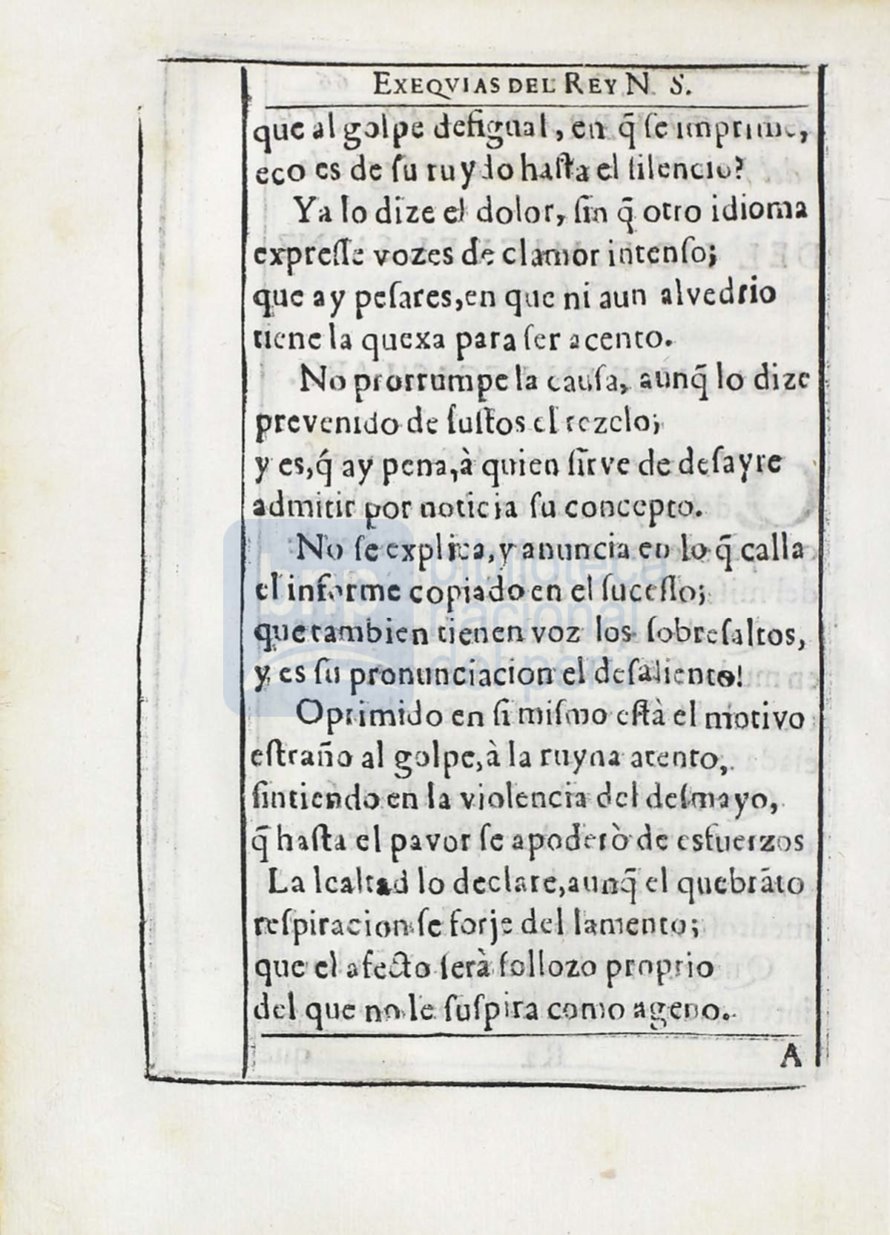 EXEQVIAS DEL REY N. S.
que al golpe desigual, en q̃ se imprime,
eco es de su ruydo hasta el silencio?
Ya lo dize el dolor, sin q̃ otro idioma
expresse vozes de clamor intenso;
que ay pesares, en que ni aun alvedrio
tiene la quexa para ser acento.
No prorrumpe la causa, aunq̃ lo dize
prevenido de sustos el rezelo;
y es, q́ ay pena, à quien sirve de desayre
admitir por noticia su concepto.
No se explica, y anuncia en lo q̃ calla
el informe copiado en el sucesso;
que tambien tienen voz los sobresaltos,
y es su pronunciacion el desaliento!
Oprimido en si mismo està el motivo
estraño al golpe, à la ruyna atento,
sintiendo en la violencia del desmayo,
q̃ hasta el pavor se apoderò de esfuerzos
La lealtad lo declare, aunq̃ el quebrãto
respiracion se forje del lamento;
que el afecto serà sollozo proprio
del que no le suspira como ageno.
A
biblioteca
nacional
del perú